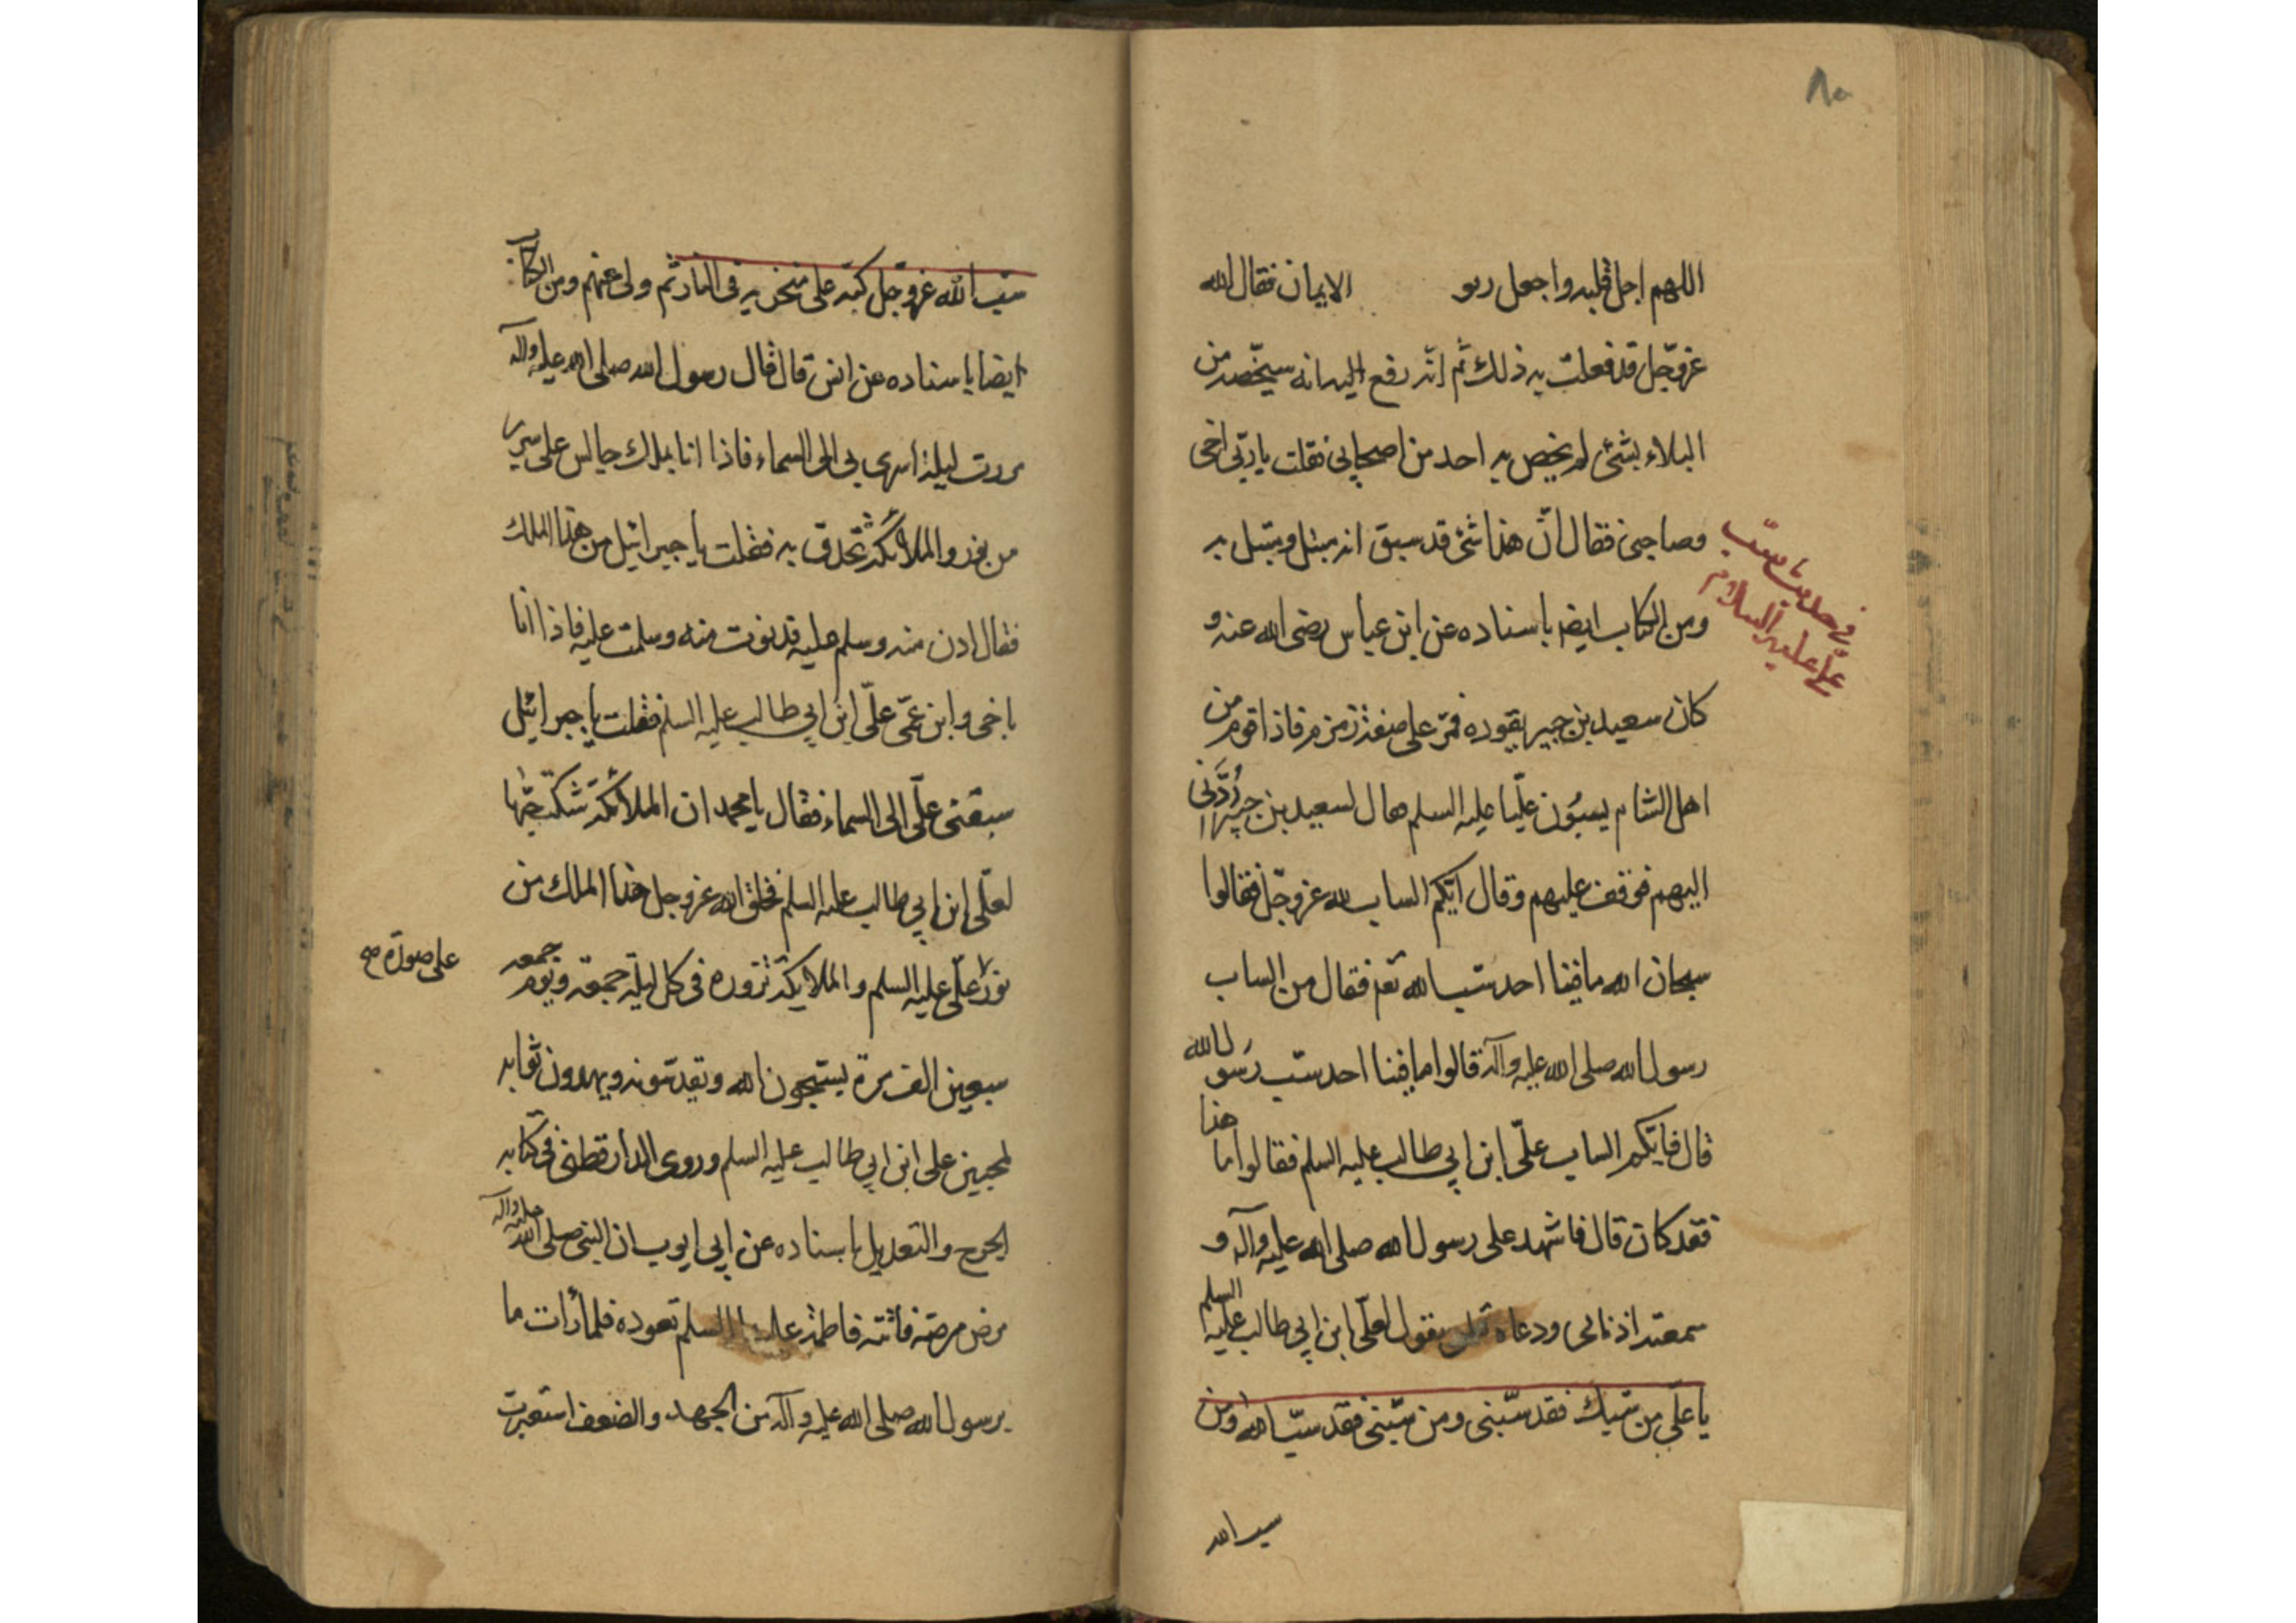 ٨٥
اللهم اجل قلبه واجعل ربو الايمان فقال الله
عزوجل قد فعلت به ذلك ثم انه رفع اليه انه سيخصه من
البلاء بشئ لم يخص به احد من اصحابي فقلت يا ربي اخى
وصاحبي فقال ان هذا شئ قد سبق انه مبتل ومبتل به
ومن الكتاب ايضا باسناده عن ابن عباس رضى الله عنه و
كان سعيد بن جبير يقوده فمر على صفة زمزم فاذا قوم من
اهل الشام يسبون عليا عليه السلم فقال لسعيد بن جبير ردني
اليهم فوقف عليهم وقال ايكم الساب لله عزوجل فقالوا
سبحان الله ما فينا احد سب الله فقال من الساب
رسول الله صلى الله عليه وآله قالوا ما فينا احد سب رسول الله
قال فايكم الساب على ابن ابي طالب عليه السلم فقالوا اما هذا
فقد كان قال فاشهد على رسول الله صلى الله عليه وآله و
سمعته اذناى ودعاه يقول لعلى ابن ابي طالب عليه السلم
يا على من سبك فقد سبنى ومن سبنى فقد سب الله ومن
سب الله
في حديث سب
على عليه السلام
سب الله عزوجل كبه على منخريه فى النار ثم ولى عنهم ومن الكتاب
ايضا باسناده عن انس قال قال رسول الله صلى الله عليه وآله
مررت ليلة اسرى بى الى السماء فاذا انا بملك جالس على سرير
من نور والملائكة تحدق به فقلت يا جبرائيل من هذا الملك
فقال ادن منه وسلم عليه فدنوت منه وسلمت عليه فاذا انا
باخى وابن عمى على ابن ابي طالب عليه السلم فقلت يا جبرائيل
سبقنى على الى السماء فقال يا محمد ان الملائكة شكت حبها
لعلى ابن ابي طالب عليه السلم فخلق الله عزوجل هذا الملك من
نور على عليه السلم والملائكة تزوره فى كل ليلة جمعة ويوم جمعه
على صورة صح
سبعين الف مرة يسبحون الله ويقدسونه ويهدون ثوابه
لمحبين على ابن ابي طالب عليه السلم وروى الدارقطنى فى كتابه
الجرح والتعديل باسناده عن ابي ايوب ان النبى صلى الله عليه وآله
مرض مرضه فاتته فاطمة عليها السلم تعوده فلما رات ما
برسول الله صلى الله عليه وآله من الجهد والضعف استعبرت